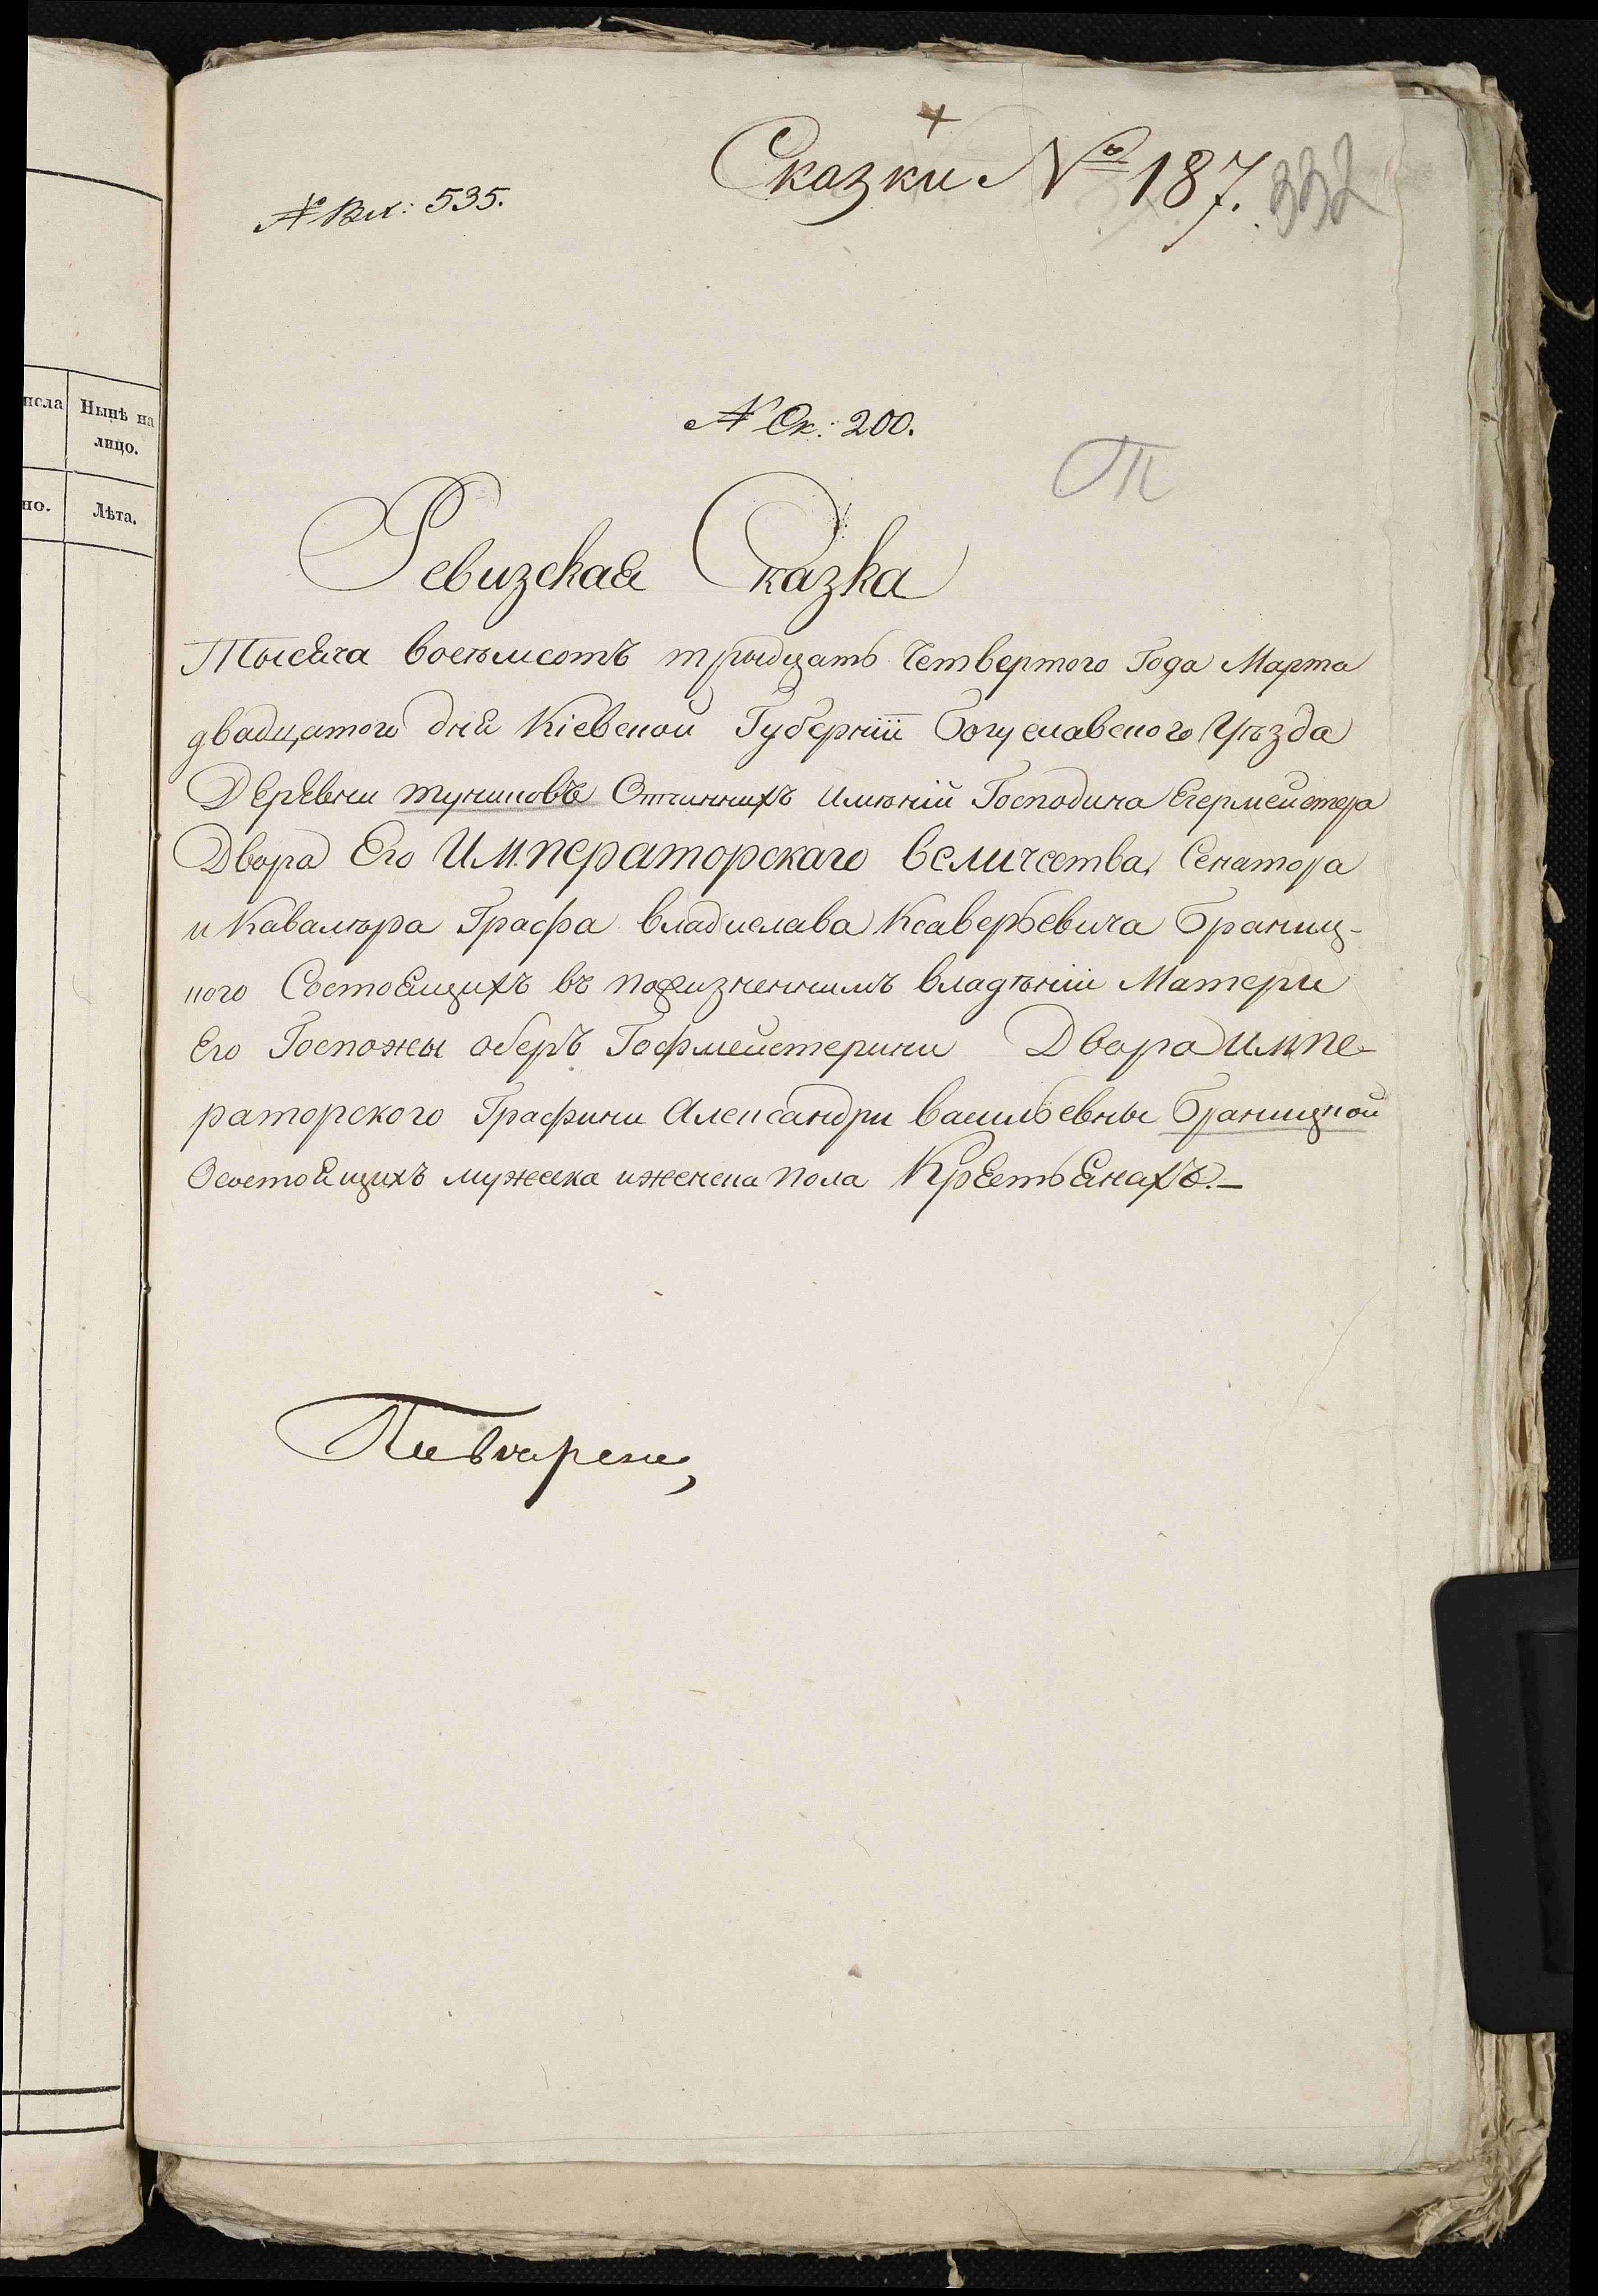 пола
Нынѣ на
лицо.
но.
Лѣта.
Сказки № 187.
332
№ Вх: 535.
№ Ск: 200.
П
Ревизская Сказка
Тысяча восемсотъ трыдцать Четвертого Года Марта
двадцатого дня Кіевской Губерніи Богуславского Уѣзда
Деревни Тунниковъ Отчинныхъ имѣній Господина Егермейстера
Двора Его Императорскаго величества, Сенатора
и Кавалѣра Графа владислава Ксаверьевича Браниц-
кого Состоящихъ въ пожизненнимъ владѣніи Матери
Его Госпожы оберъ Гофмейстерини Двора импе-
раторского Графини Александри васильевны Браницкой
Осостоящихъ мужеска иженска пола Крестьянахъ.—